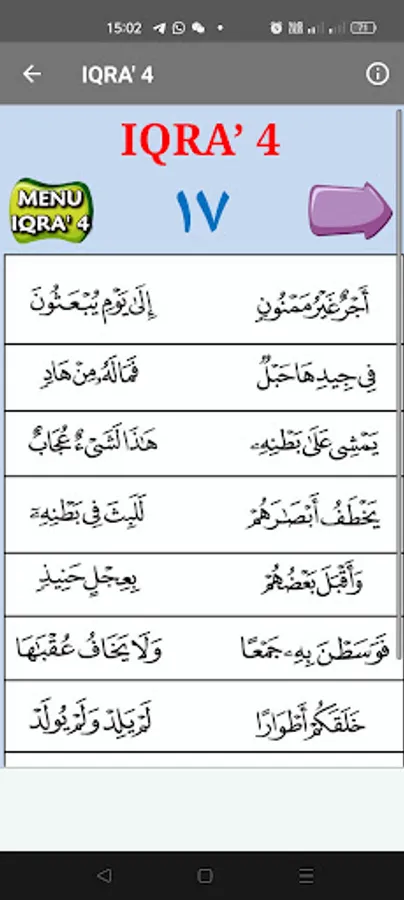 15:02
71
IQRA' 4
IQRA’ 4
MENU
IQRA' 4
١٧
أَجْرٌ غَيْرُ مَمْنُونٍ إِلَىٰ يَوْمِ يُبْعَثُونَ
فِى جِيدِهَا حَبْلٌ فَمَالَهُۥ مِنْ هَادٍ
يَمْشِى عَلَىٰ بَطْنِهِۦ هَٰذَا لَشَىْءٌ عُجَابٌ
يَخْطَفُ أَبْصَٰرَهُمْ لَلَبِثَ فِى بَطْنِهِۦٓ
وَأَقْبَلَ بَعْضُهُمْ بِعِجْلٍ حَنِيذٍ
فَوَسَطْنَ بِهِۦ جَمْعًا وَلَا يَخَافُ عُقْبَٰهَا
خَلَقَكُمْ أَطْوَارًا لَمْ يَلِدْ وَلَمْ يُولَدْ